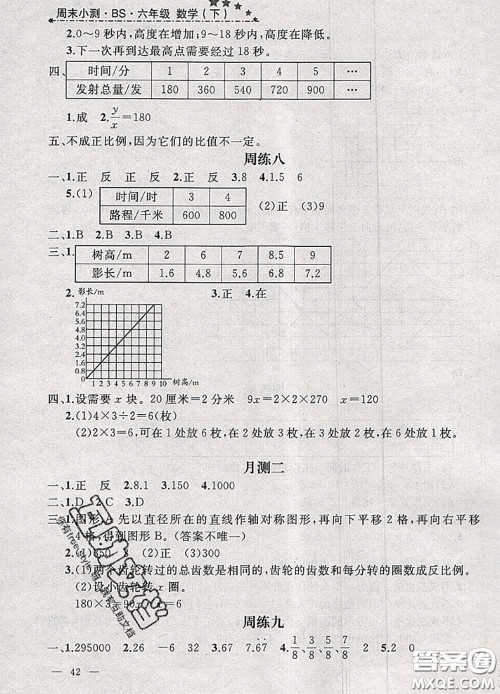 周末小测·BS·六年级 数学(下)
2.0～9 秒内,高度在增加,9～18 秒内,高度在降低。
3.下一次再到达最高点需要经过 18 秒。
四、
时间/分 1 2 3 4 5 …
发射总量/发 180 360 540 720 900 …
1.成 2.y/x=180
五、不成正比例,因为它们的比值不一定。
周练八
一、1.正 反 正 反 2.正 反 3.8 4.1.5 6
5.(1)
时间/时 3 4
路程/千米 600 800
(2)正 (3)9
二、1.B 2.B 3.B 4.B
三、1.
树高/m 2 6 7 8.5 9
影长/m 1.6 4.8 5.6 6.8 7.2
2. 影长/m 3.正 4.在
7.2
6.4
5.6
4.8
4.0
3.2
2.4
1.6
0.8
0 1 2 3 4 5 6 7 8 9 10 树高/m
四、1.设需要 x 块。20 厘米=2 分米 9x=2×2×270 x=120
2.(1)4×3÷2=6(枚)
(2)2×3=6,可在 1 处放 6 枚,在 2 处放 3 枚,在 3 处放 2 枚。
月测二
一、1.正 反 2.8.1 3.150 4.1000
二、1.D 2.C 3.D
三、1.图形 先以直径所在的直线作轴对称图形,再向下平移 2 格,再向右平移
4 格,得到图形 B。(答案不唯一)
2.(1)850 (2)正 (3)300
3.(1)两个齿轮转过的总齿数是相同的,齿轮的齿数和每分转的圈数成反比例。
(2)设小齿轮转 x 圈。
180×3=90x x=6
周练九
一、1.295000 2.26 －6 32 3.77 4.1/8 3/8 5/8 7/8 2 5.2 0
— 42 —
答案圈
MXQE.COM